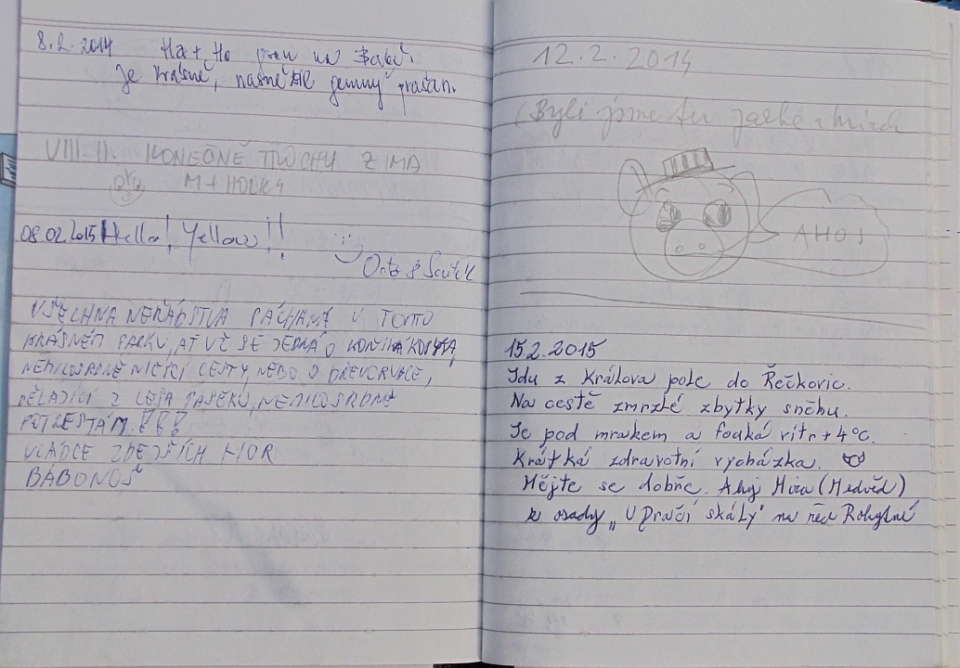 8.2.2014 Ha+Ho jsem na Babě.
Je krásně, nasněžil jemný prašan.
VIII. II. KONEČNĚ TROCHU ZIMA
M + HOLKY
08.02.2015 Hello! Yellow!!
VŠECHNA NEŘÁDSTVA PÁCHANÁ V TOMTO
KRÁSNÉM PARKU, AŤ UŽ SE JEDNÁ O KOŇSKÁ KOPYTA,
NEMILOSRDNĚ NIČÍCÍ CESTY, NEBO O DŘEVORUBCE,
DĚLAJÍCÍ Z LESA PASEKU, NEMILOSRDNĚ
POTRESTÁM!!!
VLÁDCE ZDEJŠÍCH HOR
BÁBONOŠ
12.2.2014
Byli jsme tu
AHOJ
15.2.2015
Jdu z Králova pole do Řečkovic.
Na cestě zmrzlé zbytky sněhu.
Je pod mrakem a fouká vítr +4°C.
Krátká zdravotní vycházka.
Mějte se dobře. Ahoj Míra (Medvěd)
z osady „U Pračí skály" na řece Rokytné